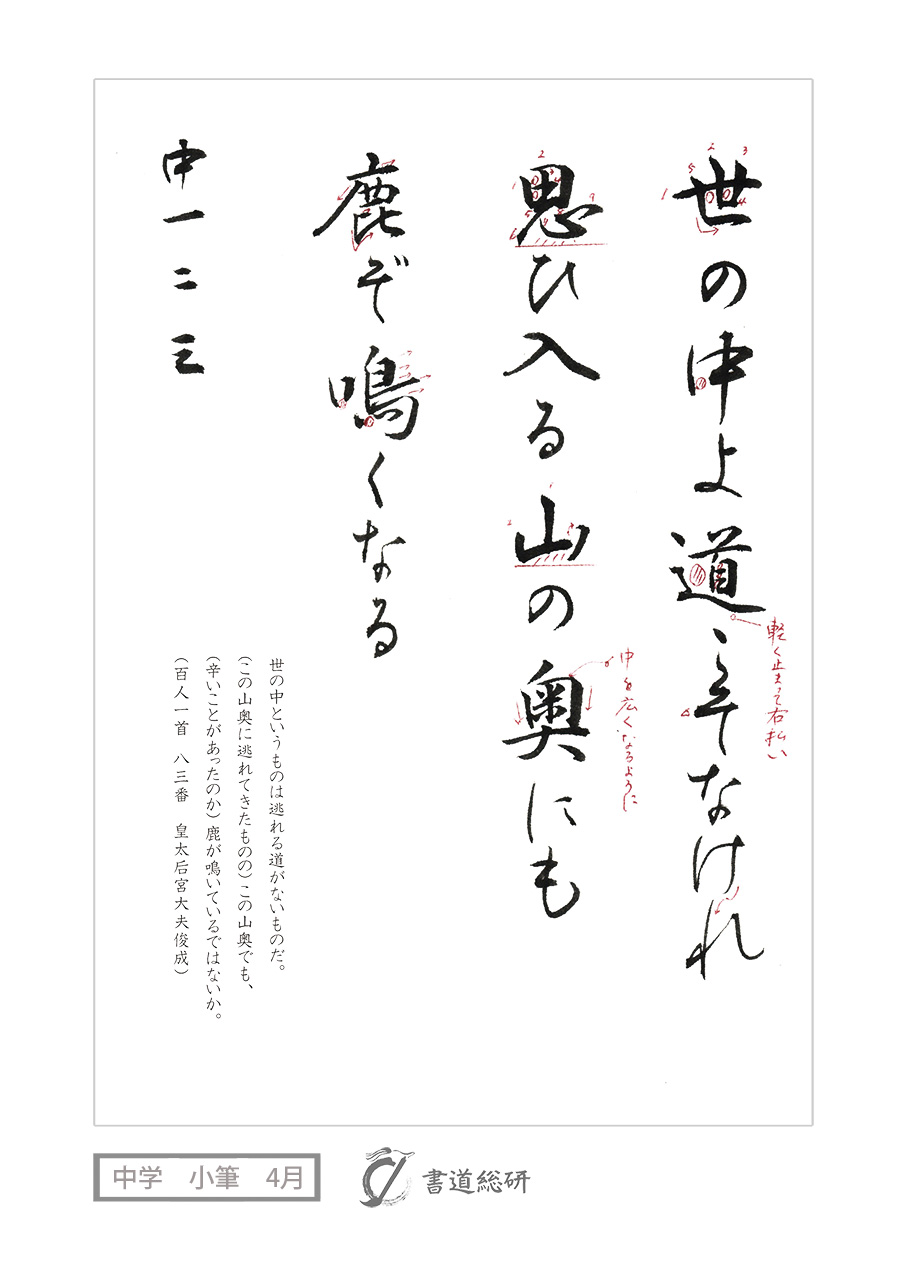 世の中よ道こそなけれ
思ひ入る山の奥にも
鹿ぞ鳴くなる
中一二三
軽く止まって右払い
中を広くなるように
世の中というものは逃れる道がないものだ。
(この山奥に逃れてきたものの)この山奥でも、
(辛いことがあったのか)鹿が鳴いているではないか。
(百人一首 八三番 皇太后宮大夫俊成)
中学 小筆 4月
書道総研